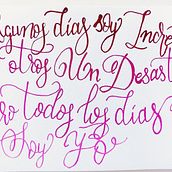 lgunos días soy Incre
otros Un Desast
ro todos los días
Soy Yo